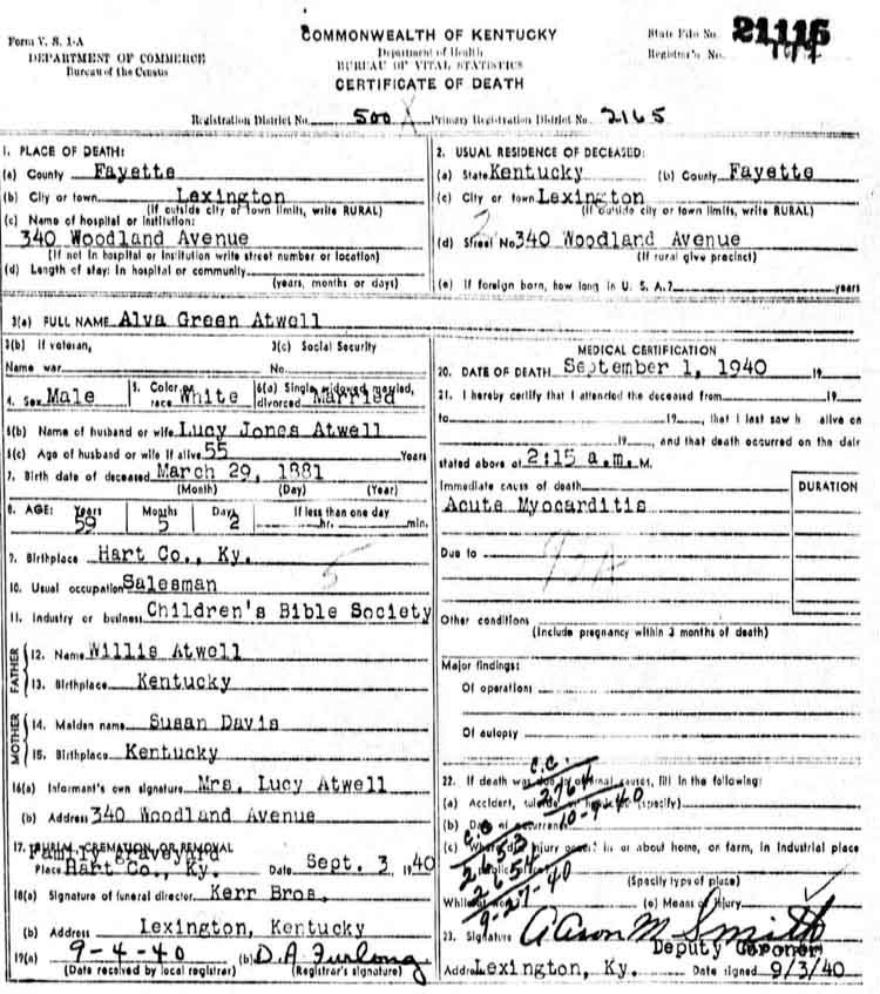 Form V. S. 1-A
DEPARTMENT OF COMMERCE
Bureau of the Census
COMMONWEALTH OF KENTUCKY
Department of Health
BUREAU OF VITAL STATISTICS
CERTIFICATE OF DEATH
State File No. 21116
Registrar's No.
Registration District No. 500 Primary Registration District No. 2165
1. PLACE OF DEATH:
(a) County Fayette
(b) City or town Lexington
(If outside city or town limits, write RURAL)
(c) Name of hospital or institution:
340 Woodland Avenue
(If not in hospital or institution write street number or location)
(d) Length of stay: In hospital or community
(years, months or days)
2. USUAL RESIDENCE OF DECEASED:
(a) State Kentucky (b) County Fayette
(c) City or town Lexington
(If outside city or town limits, write RURAL)
(d) Street No 340 Woodland Avenue
(If rural give precinct)
(e) If foreign born, how long in U. S. A.? years
3(a) FULL NAME Alva Green Atwell
3(b) If veteran, 3(c) Social Security
Name war No.
4. Sex Male 5. Color or race White 6(a) Single, widowed, married, divorced Married
6(b) Name of husband or wife Lucy Jones Atwell
6(c) Age of husband or wife if alive 55 Years
7. Birth date of deceased March 29, 1881
(Month) (Day) (Year)
8. AGE: Years Months Days If less than one day
59 5 2 hr. min.
9. Birthplace Hart Co., Ky.
10. Usual occupation Salesman
11. Industry or business Children's Bible Society
FATHER
12. Name Willis Atwell
13. Birthplace Kentucky
MOTHER
14. Maiden name Susan Davis
15. Birthplace Kentucky
16(a) Informant's own signature Mrs. Lucy Atwell
(b) Address 340 Woodland Avenue
17. BURIAL, CREMATION, OR REMOVAL
Family graveyard
Place Hart Co., Ky. Date Sept. 3, 1940
18(a) Signature of funeral director Kerr Bros.
(b) Address Lexington, Kentucky
19(a) 9-4-40 (b) D.A. Furlong
(Date received by local registrar) (Registrar's signature)
MEDICAL CERTIFICATION
20. DATE OF DEATH September 1, 1940 19
21. I hereby certify that I attended the deceased from 19
to 19, that I last saw h alive on
19, and that death occurred on the date
stated above at 2:15 a.m. M.
Immediate cause of death DURATION
Acute Myocarditis
Due to
Other conditions
(Include pregnancy within 3 months of death)
Major findings:
Of operations
Of autopsy
22. If death was due to external causes, fill in the following:
(a) Accident, suicide, or homicide (specify)
(b) Date of occurrence
(c) Where did injury occur? in or about home, on farm, in industrial place
public place?
(Specify type of place)
While at work (e) Means of injury
C.C.
2764
10-9-40
C.C.
2653
2654
9-27-40
23. Signature Aaron M Smith
Deputy Coroner
Address Lexington, Ky. Date signed 9/3/40